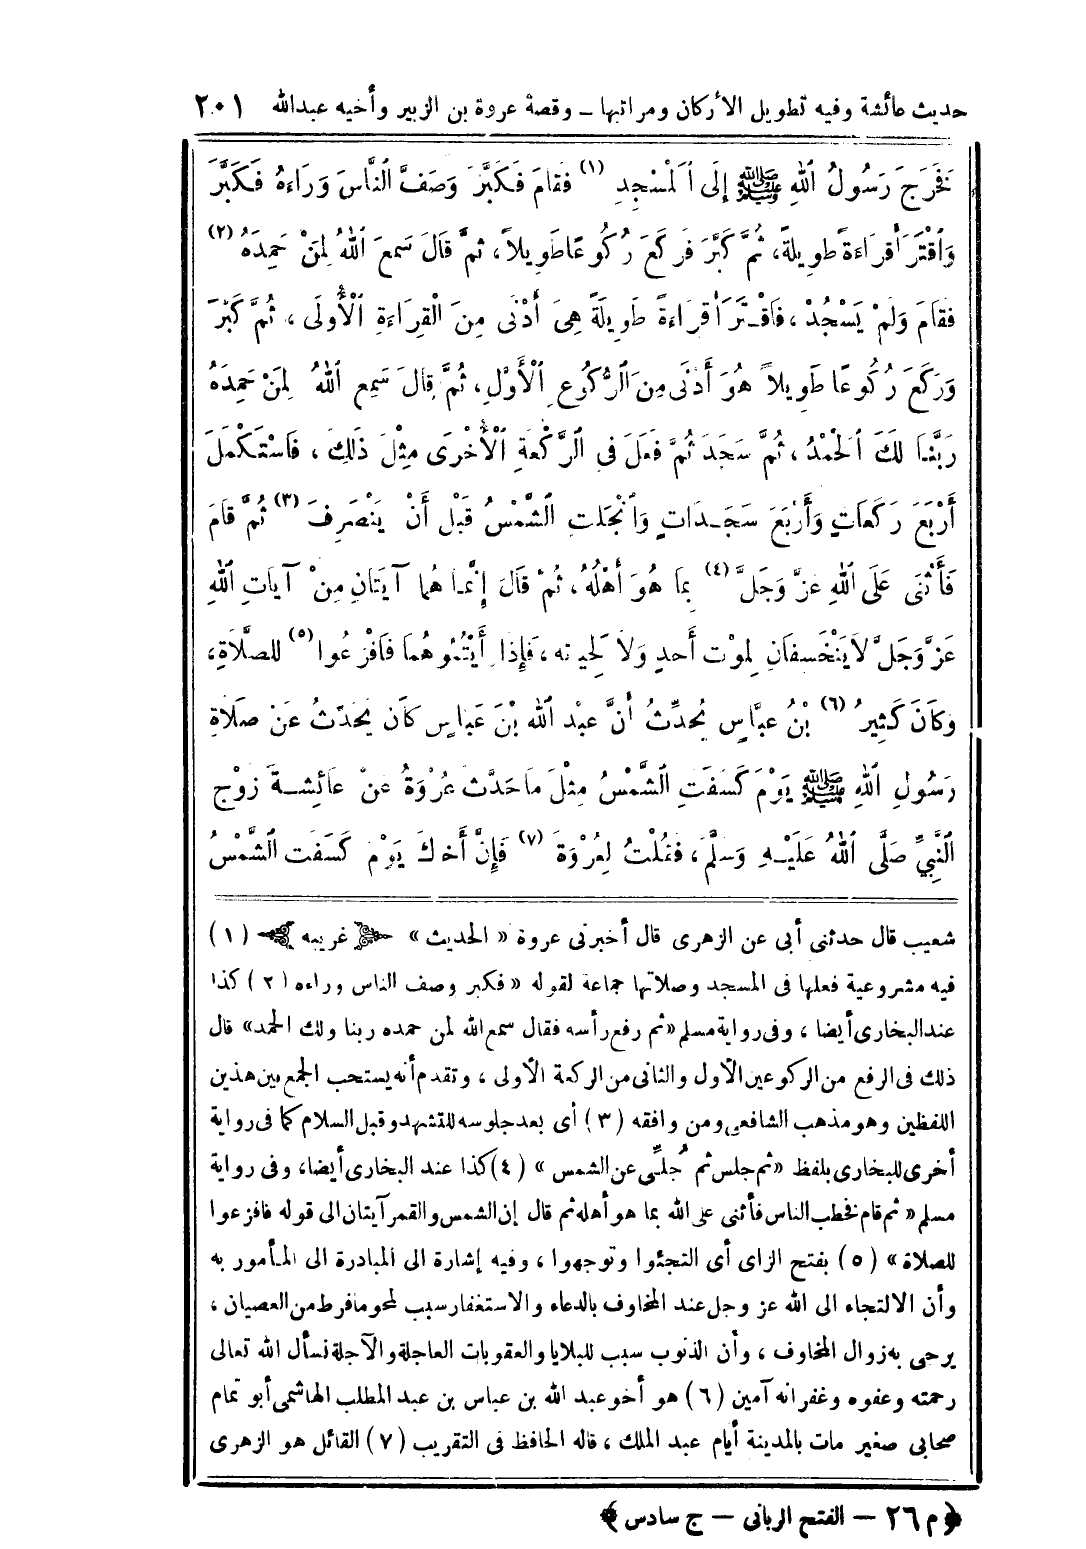 حديث عائشة وفيه تطويل الأركان ومراتبها ــ وقصة عروة بن الزبير وأخيه عبدالله ٢٠١
فَخَرَجَ رَسُولُ اللهِ ﷺ إِلَى الْمَسْجِدِ (١) فَقَامَ فَكَبَّرَ وَصَفَّ النَّاسَ وَرَاءَهُ فَكَبَّرَ
وَاقْتَرَأَ قِرَاءَةً طَوِيلَةً، ثُمَّ كَبَّرَ فَرَكَعَ رُكُوعًا طَوِيلاً، ثُمَّ قَالَ سَمِعَ اللهُ لِمَنْ حَمِدَهُ (٢)
فَقَامَ وَلَمْ يَسْجُدْ، فَاقْتَرَأَ قِرَاءَةً طَوِيلَةً هِيَ أَدْنَى مِنَ الْقِرَاءَةِ الْأُولَى، ثُمَّ كَبَّرَ
وَرَكَعَ رُكُوعًا طَوِيلاً هُوَ أَدْنَى مِنَ الرُّكُوعِ الْأَوَّلِ، ثُمَّ قَالَ سَمِعَ اللهُ لِمَنْ حَمِدَهُ
رَبَّنَا لَكَ الْحَمْدُ، ثُمَّ سَجَدَ ثُمَّ فَعَلَ فِي الرَّكْعَةِ الْأُخْرَى مِثْلَ ذَلِكَ، فَاسْتَكْمَلَ
أَرْبَعَ رَكَعَاتٍ وَأَرْبَعَ سَجَدَاتٍ وَانْجَلَتِ الشَّمْسُ قَبْلَ أَنْ يَنْصَرِفَ (٣) ثُمَّ قَامَ
فَأَثْنَى عَلَى اللهِ عَزَّ وَجَلَّ (٤) بِمَا هُوَ أَهْلُهُ، ثُمَّ قَالَ إِنَّمَا هُمَا آيَتَانِ مِنْ آيَاتِ اللهِ
عَزَّ وَجَلَّ لاَ يَنْخَسِفَانِ لِمَوْتِ أَحَدٍ وَلاَ لِحَيَاتِهِ، فَإِذَا رَأَيْتُمُوهُمَا فَافْزَعُوا (٥) لِلصَّلاَةِ،
وَكَانَ كَثِيرُ (٦) بْنُ عَبَّاسٍ يُحَدِّثُ أَنَّ عَبْدَ اللهِ بْنَ عَبَّاسٍ كَانَ يُحَدِّثُ عَنْ صَلاَةِ
رَسُولِ اللهِ ﷺ يَوْمَ كَسَفَتِ الشَّمْسُ مِثْلَ مَا حَدَّثَ عُرْوَةُ عَنْ عَائِشَةَ زَوْجِ
النَّبِيِّ صَلَّى اللهُ عَلَيْهِ وَسَلَّمَ، فَقُلْتُ لِعُرْوَةَ (٧) فَإِنَّ أَخَاكَ يَوْمَ كَسَفَتِ الشَّمْسُ
شعيب قال حدثنى أبى عن الزهرى قال أخبرنى عروة « الحديث » غريبه (١)
فيه مشروعية فعلها فى المسجد وصلاتها جماعة لقوله « فكبر وصف الناس وراءه (٢) كذا
عند البخارى أيضا، وفى رواية مسلم «ثم رفع رأسه فقال سمع الله لمن حمده ربنا ولك الحمد» قال
ذلك فى الرفع من الركوعين الأول والثانى من الركعة الأولى، وتقدم أنه يستحب الجمع بين هذين
اللفظين وهو مذهب الشافعى ومن وافقه (٣) أى بعد جلوسه للتشهد وقبل السلام كما فى رواية
أخرى للبخارى بلفظ «ثم جلس ثم جُلِّى عن الشمس » (٤) كذا عند البخارى أيضا، وفى رواية
مسلم « ثم قام فخطب الناس فأثنى على الله بما هو أهله ثم قال إن الشمس والقمر آيتان الى قوله فافزعوا
للصلاة » (٥) بفتح الزاى أى التجئوا وتوجهوا، وفيه إشارة الى المبادرة الى المأمور به
وأن الالتجاء الى الله عز وجل عند المخاوف بالدعاء والاستغفار سبب لمحو ما فرط من العصيان،
يرجى به زوال المخاوف، وأن الذنوب سبب للبلايا والعقوبات العاجلة والآجلة نسأل الله تعالى
رحمته وعفوه وغفرانه آمين (٦) هو أخو عبد الله بن عباس بن عبد المطلب الهاشمى أبو تمام
صحابى صغير مات بالمدينة أيام عبد الملك، قاله الحافظ فى التقريب (٧) القائل هو الزهرى
﴿م ٢٦ ــ الفتح الربانى ــ ج سادس﴾